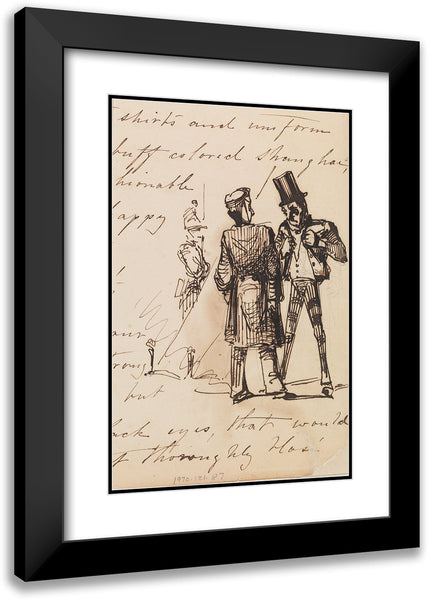 shirts and uniform
buff colored Shanghai,
hionable
happy
but
ck eyes, that would
thoroughly
1970.121.87